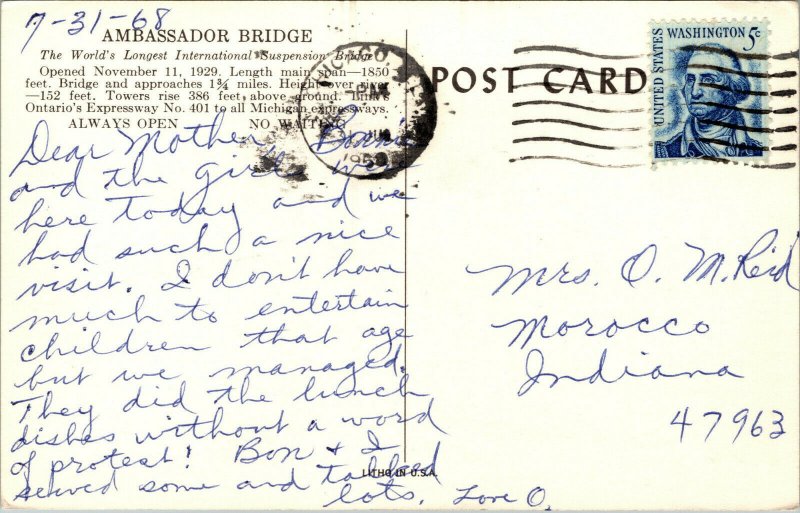 7-31-68
AMBASSADOR BRIDGE
The World's Longest International Suspension Bridge
Opened November 11, 1929. Length main span—1850
feet. Bridge and approaches 1¾ miles. Height over river
—152 feet. Towers rise 386 feet above ground. Links
Ontario's Expressway No. 401 to all Michigan expressways.
ALWAYS OPEN NO WAITING
Dear Mother, Bonnie
and the girls were
here today and we
had such a nice
visit. I don't have
much to entertain
children that age
but we managed.
They did the lunch
dishes without a word
of protest! Bon & I
served some and talked
lots. Love O.
LITHO IN U.S.A.
POST CARD
CHICAGO
UNITED STATES
WASHINGTON 5c
Mrs. O. M. Reid
Morocco
Indiana
47963